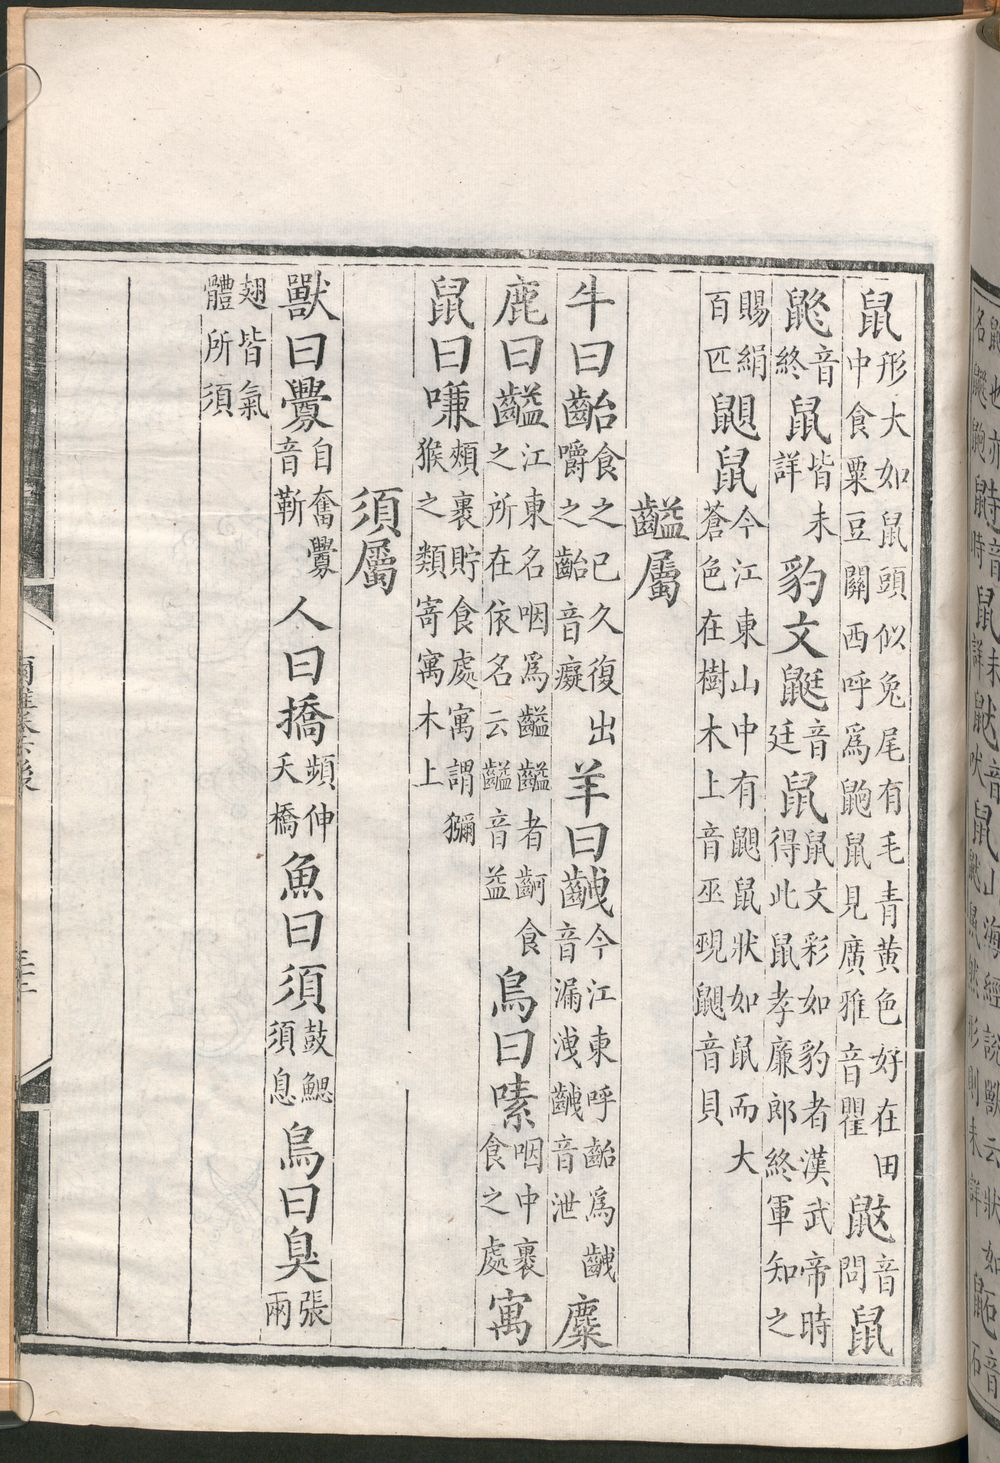 鼠形大如鼠頭似兔尾有毛青黃色好在田中食粟豆關西呼爲鼩鼠見廣雅音瞿鼤音問鼠
鼨音終鼠皆未詳豹文鼮音廷鼠鼠文彩如豹者漢武帝時得此鼠孝廉郎終軍知之
賜絹百匹鼳鼠今江東山中有鼳鼠狀如鼠而大蒼色在樹木上音巫覡鼳音貝
齸屬
牛曰齝食之已久復出嚼之齝音癡羊曰齥今江東呼齝爲齥音漏洩齥音泄麋
鹿曰齸江東名咽爲齸齸者齝食之所在依名云齸音益鳥曰嗉咽中裹食之處寓
鼠曰嗛頰裹貯食處寓謂獼猴之類寄寓木上
須屬
獸曰釁自奮釁音靳人曰撟頻伸夭橋魚曰須鼓鰓須息鳥曰狊張兩
翅皆氣體所須